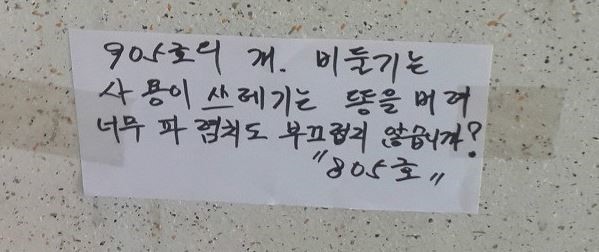 905호의 개. 비둘기는
사용이 쓰레기는 똥을 버려
너무 파렴치도 부끄럽지 않습니까?
"805호"